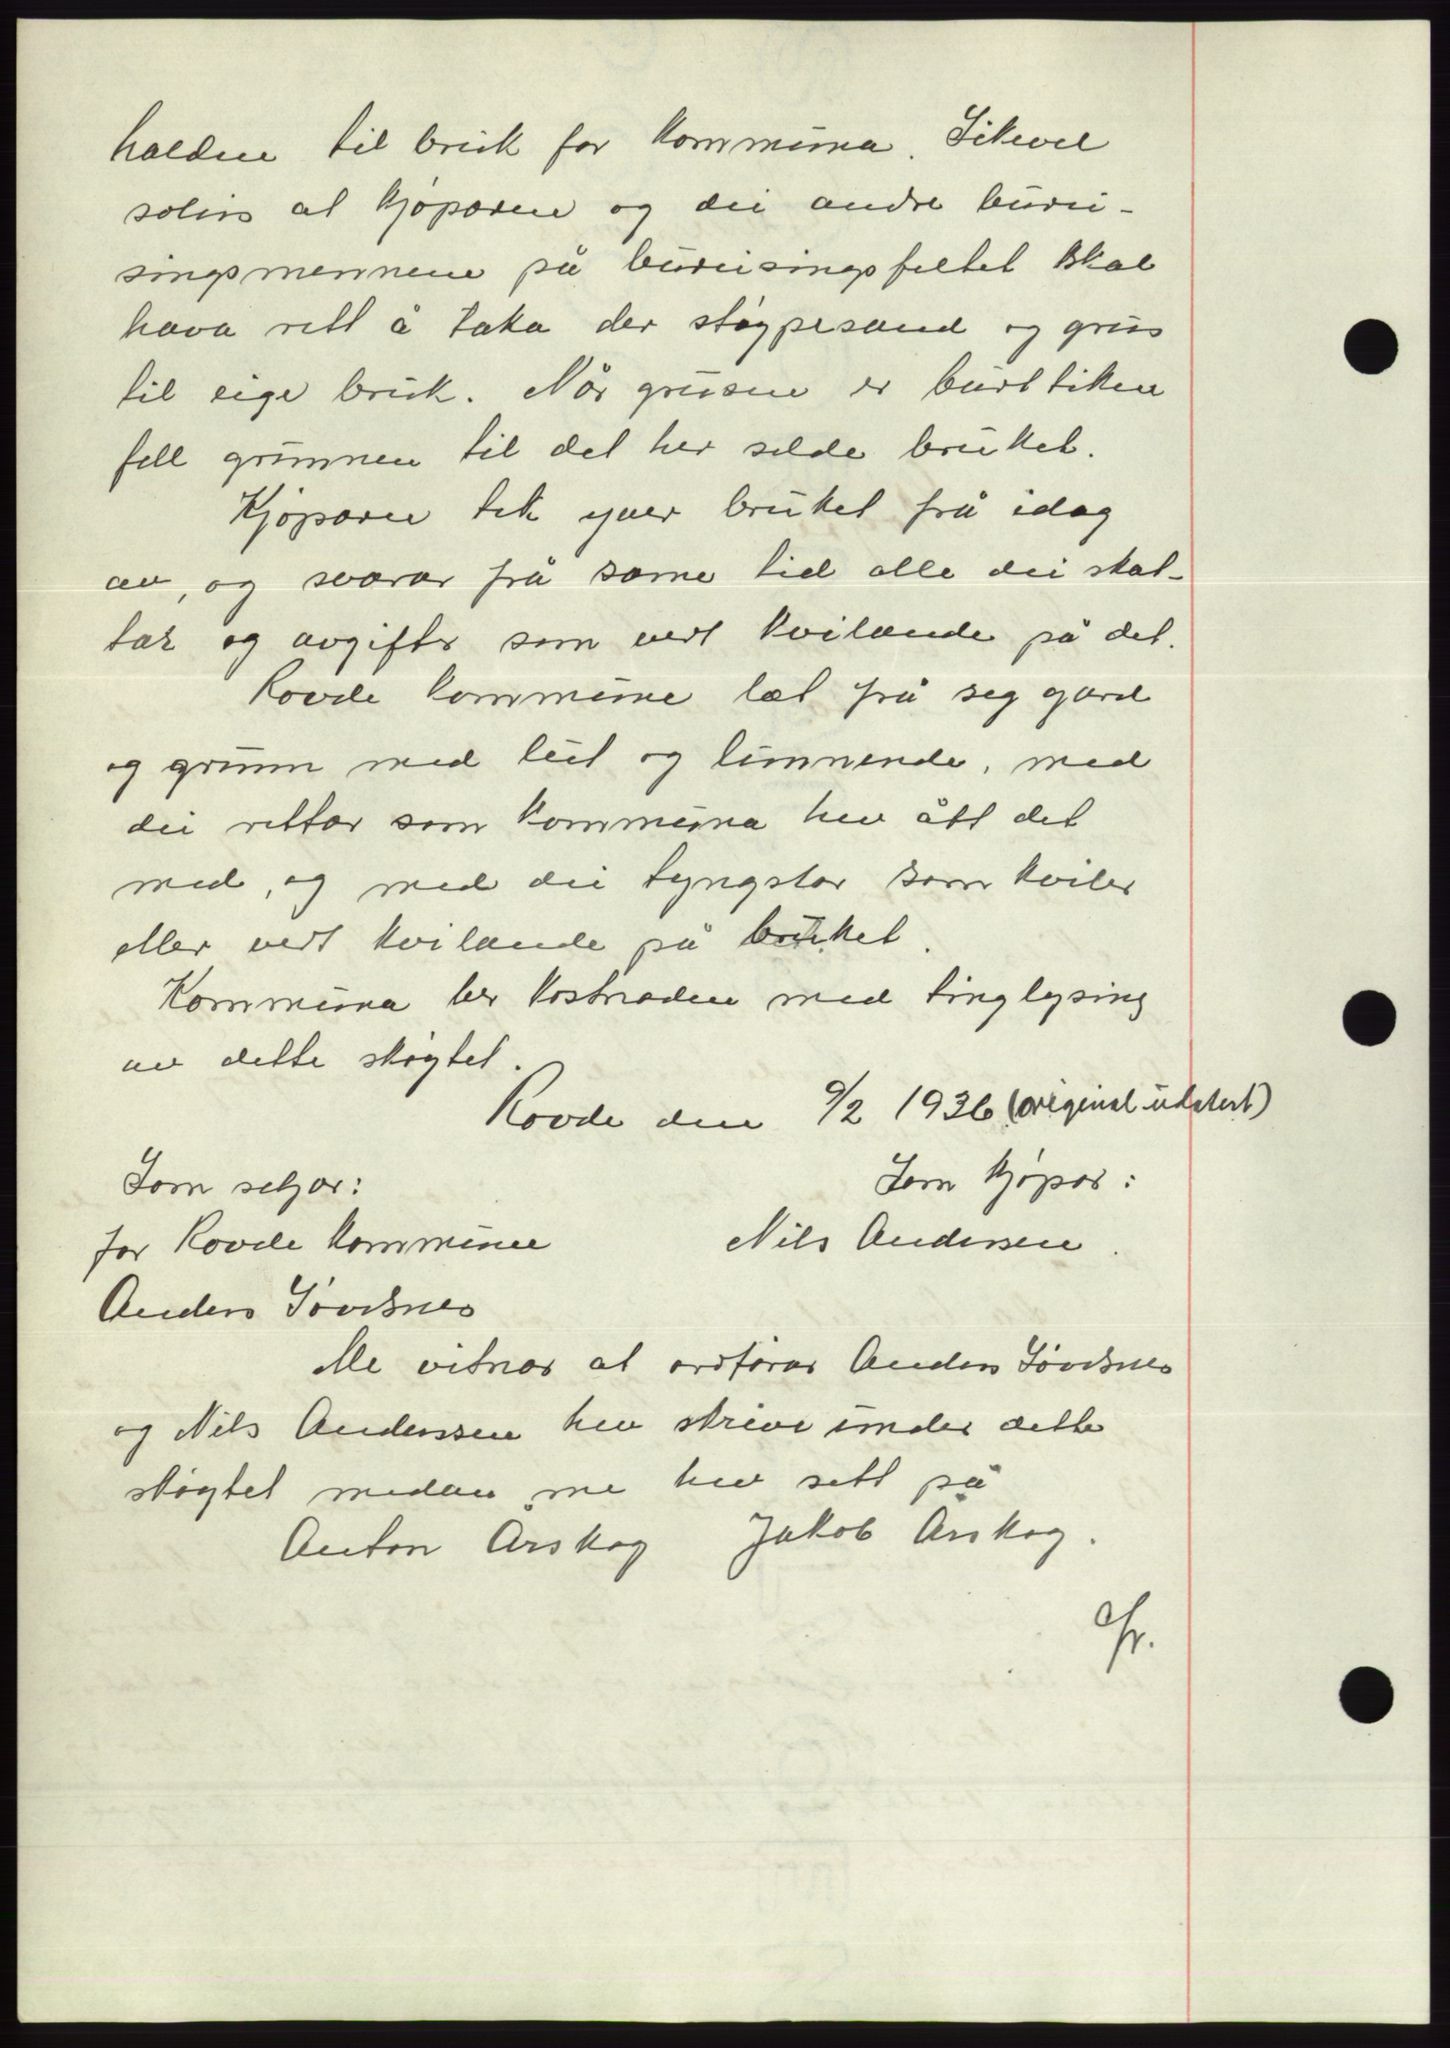 halden til bruk for kommuna. Likevel
soleis at kjøparen og dei andre burei-
singsmennene på bureisingsfeltet skal
hava rett å taka der støypesand og grus
til eige bruk. Når grusen er burttiken
fell grunnen til det her selde bruket.
Kjøparen tek yver bruket frå idag
av, og svarar frå same tid alle dei skat-
tar og avgifter som vert kvilande på det.
Rovde kommune læt frå seg gard
og grunn med lut og lunnende, med
dei rettar som kommuna hev ått det
med, og med dei tyngslor som kviler
eller vert kvilande på bruket.
Kommuna ber kostnaden med tinglysing
av dette skøytet.
Rovde den 9/2 1936 (original udatert)
Som seljar: Som kjøpar:
for Rovde kommune Nils Anderssen.
Anders Søvdsnes
Me vitnar at ordførar Anders Søvdsnes
og Nils Anderssen hev skrive under dette
skøytet medan me hev sett på
Anton Årskog Jakob Årskog.